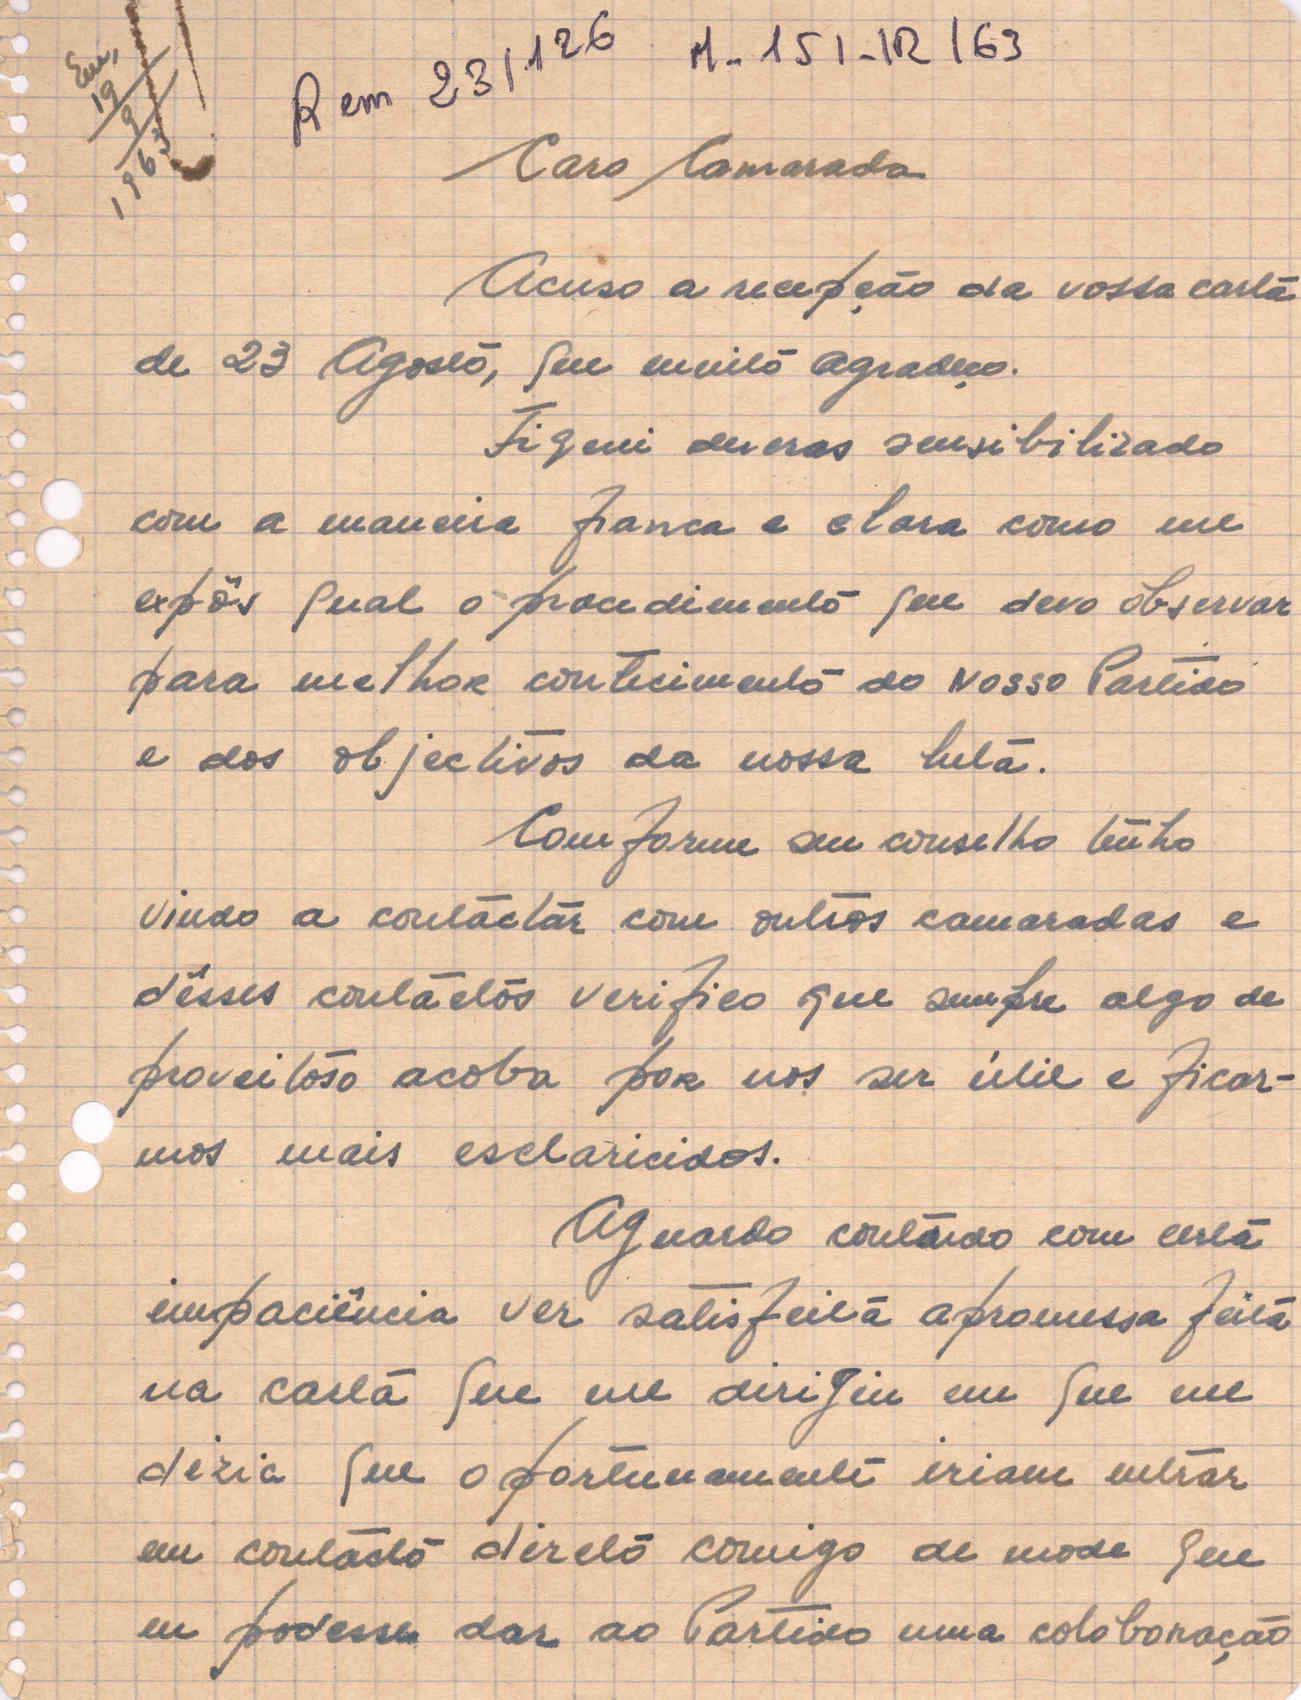 Em,
19
9
1963
Rem 23/126 M-151-R/63
Caro Camarada
Acuso a recepção da vossa carta
de 23 Agosto, que muito agradeço.
Fiquei deveras sensibilizado
com a maneira franca e clara como me
expôs qual o procedimento que devo observar
para melhor conhecimento do nosso Partido
e dos objectivos da nossa luta.
Comforme seu conselho tenho
vindo a contactar com outros camaradas e
dêsses contactos verifico que sempre algo de
proveitoso acaba por nos ser útil e ficar-
mos mais esclaricidos.
Aguardo contudo com certa
impaciência ver satisfeita a promessa feita
na carta que me dirigiu em que me
dizia que oportunamente iriam entrar
em contacto direto comigo de mode que
eu podesse dar ao Partido uma colaboração